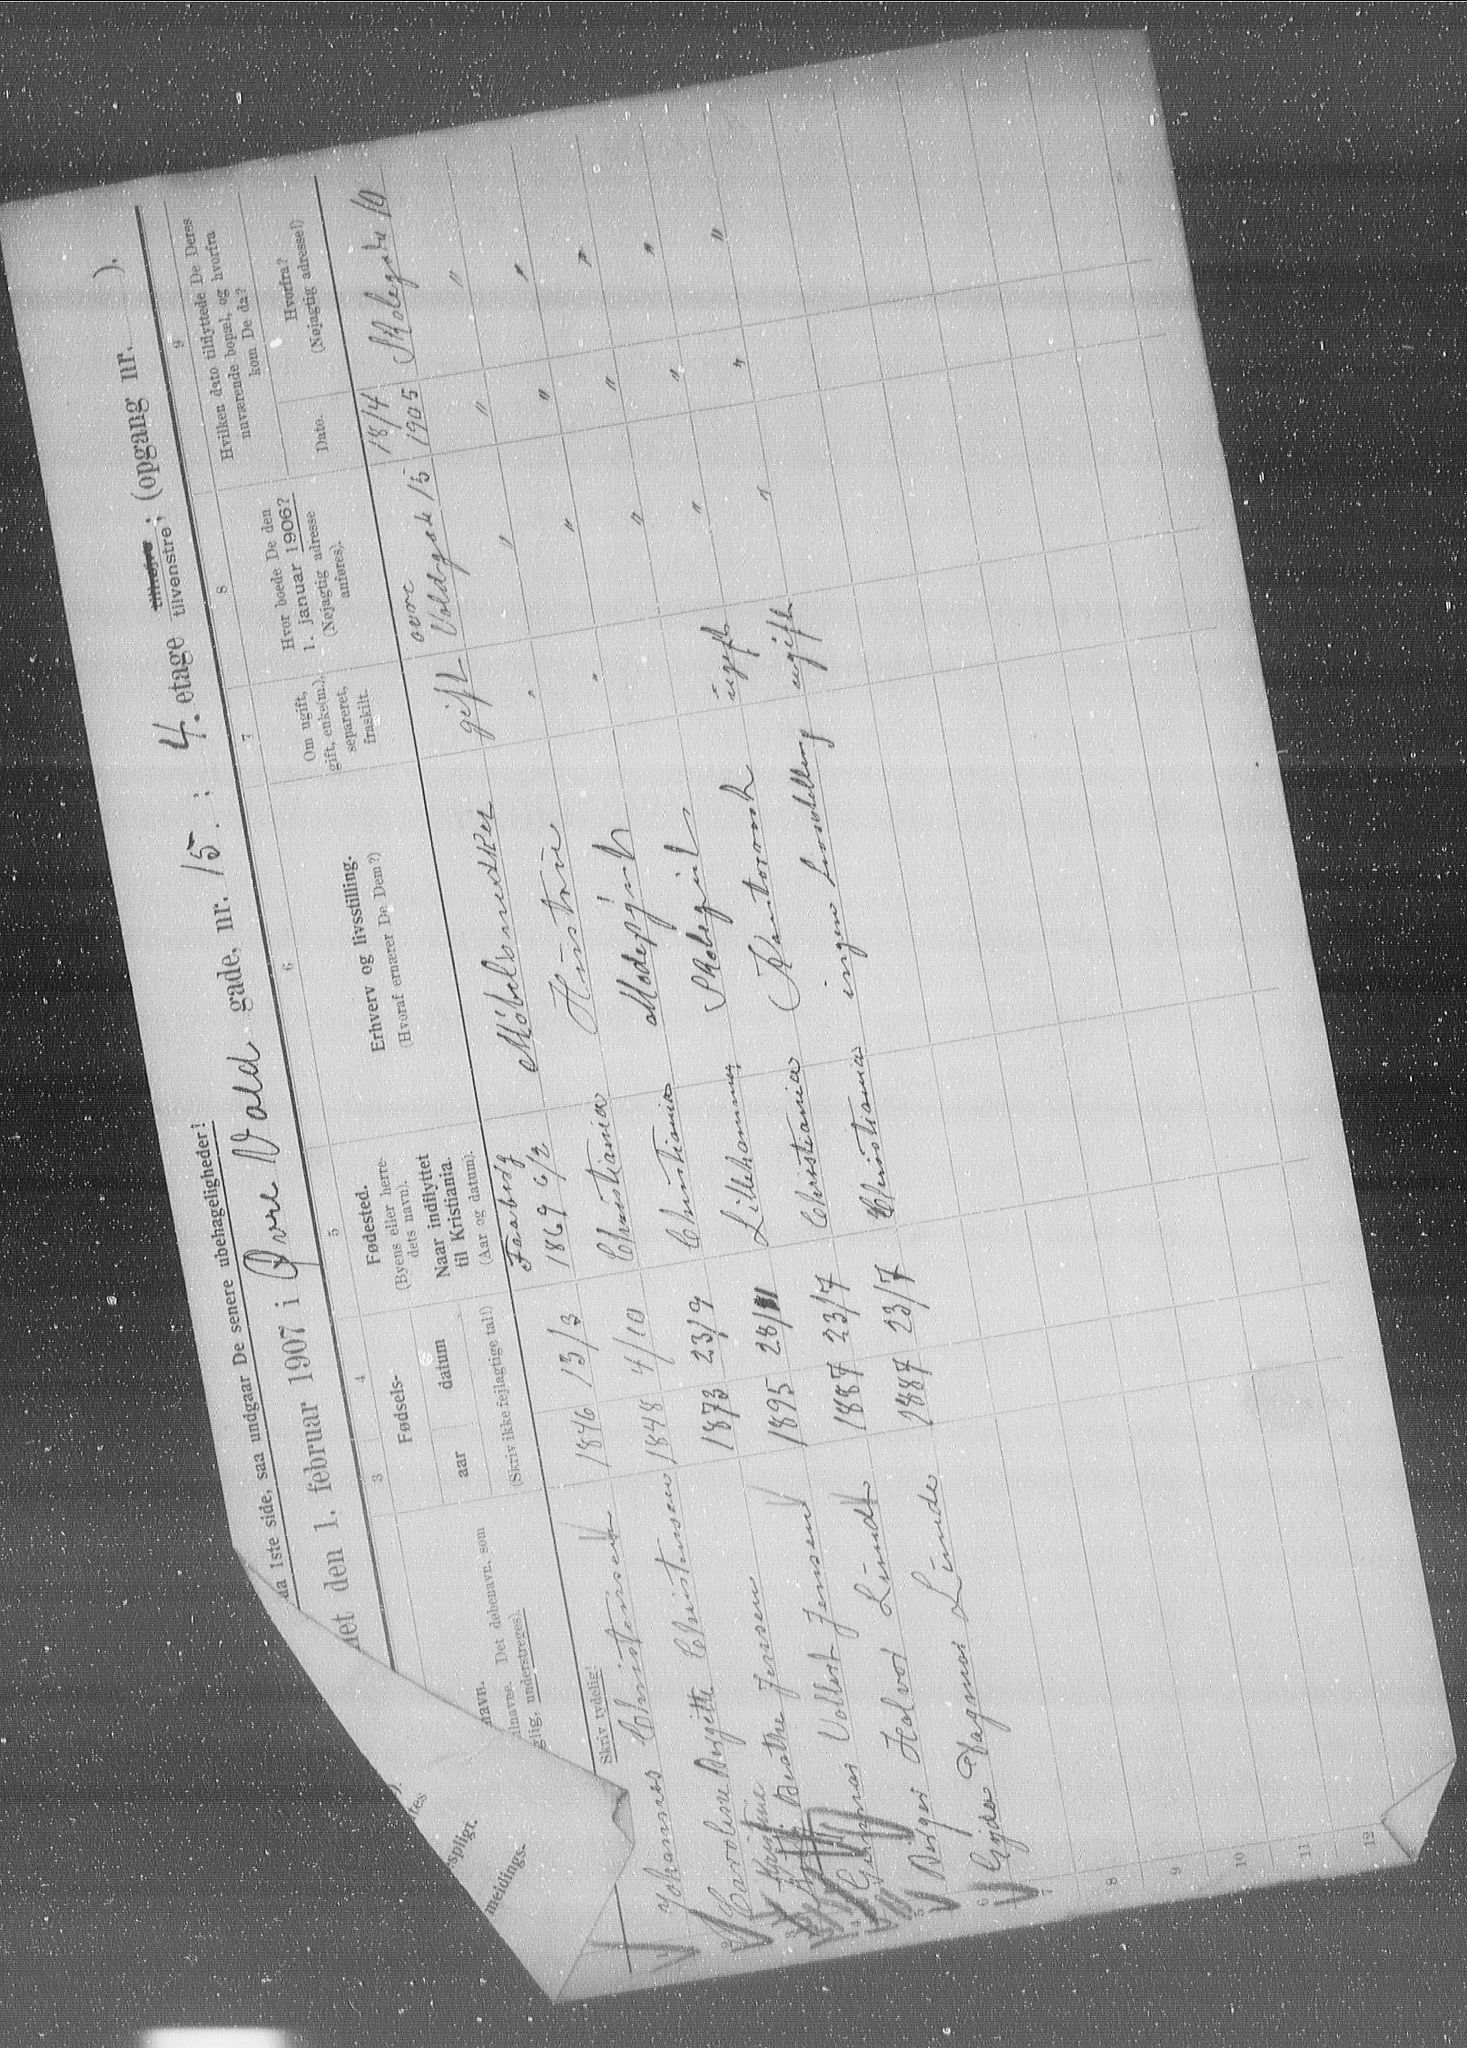 da 1ste side, saa undgaar De senere ubehageligheder!
det den 1. februar 1907 i Øvre Vold gade, nr. 15. ; 4. etage tilhøjre tilvenstre; (opgang nr. ).
3 4 5 6 7 8 9
navn.
Det døbenavn, som
glig, understreges).
Skriv tydelig!
Fødsels-
aar datum
(Skriv ikke fejlagtige tal!)
Fødested.
(Byens eller herre-
dets navn).
Naar indflyttet
til Kristiania.
(Aar og datum).
Erhverv og livsstilling.
(Hvoraf ernærer De Dem?)
Om ugift,
gift, enke(m.),
separeret,
fraskilt.
Hvor boede De den
1. januar 1906?
(Nøjagtig adresse
anføres).
Hvilken dato tilflyttede De Deres
nuværende bopæl, og hvorfra
kom De da?
Dato.
Hvorfra?
(Nøjagtig adresse!)
Johannes Christensen 1846 13/3 Faaberg 1869 6/2 Möbelsnedker gift øvre Voldgade 15 18/4 1905 Skolegata 10
2 Caroline Birgitte Christensen 1848 4/10 Christiania Hüstrü " " " "
3 Beathe Jensen 1873 23/9 Christiania " " " "
4 Gunnar Volkert Jensen 1895 Lillehammer Skolegut " " "
5 Birger Halvor Lunde 1887 23/7 Christiania ugift " " "
6 Gyda Dagmar Lunde 1887 23/7 Christiania ingen livsstelling ugift " " "
7
8
9
10
11
12
spligt.
meldings.